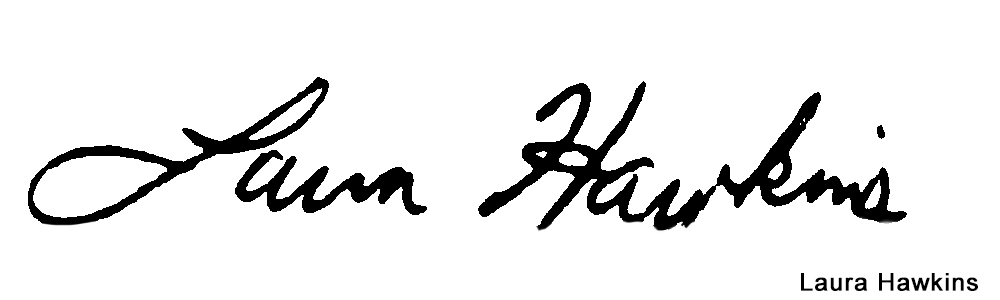 Laura Hawkins
Laura Hawkins